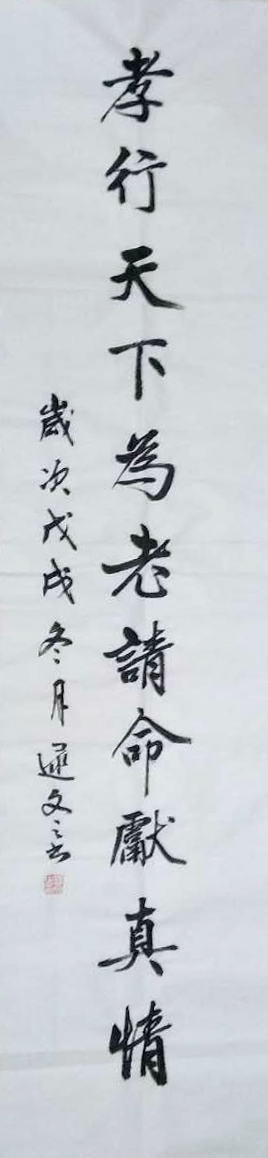 孝行天下為老請命獻真情
歲次戊戌冬月運文書